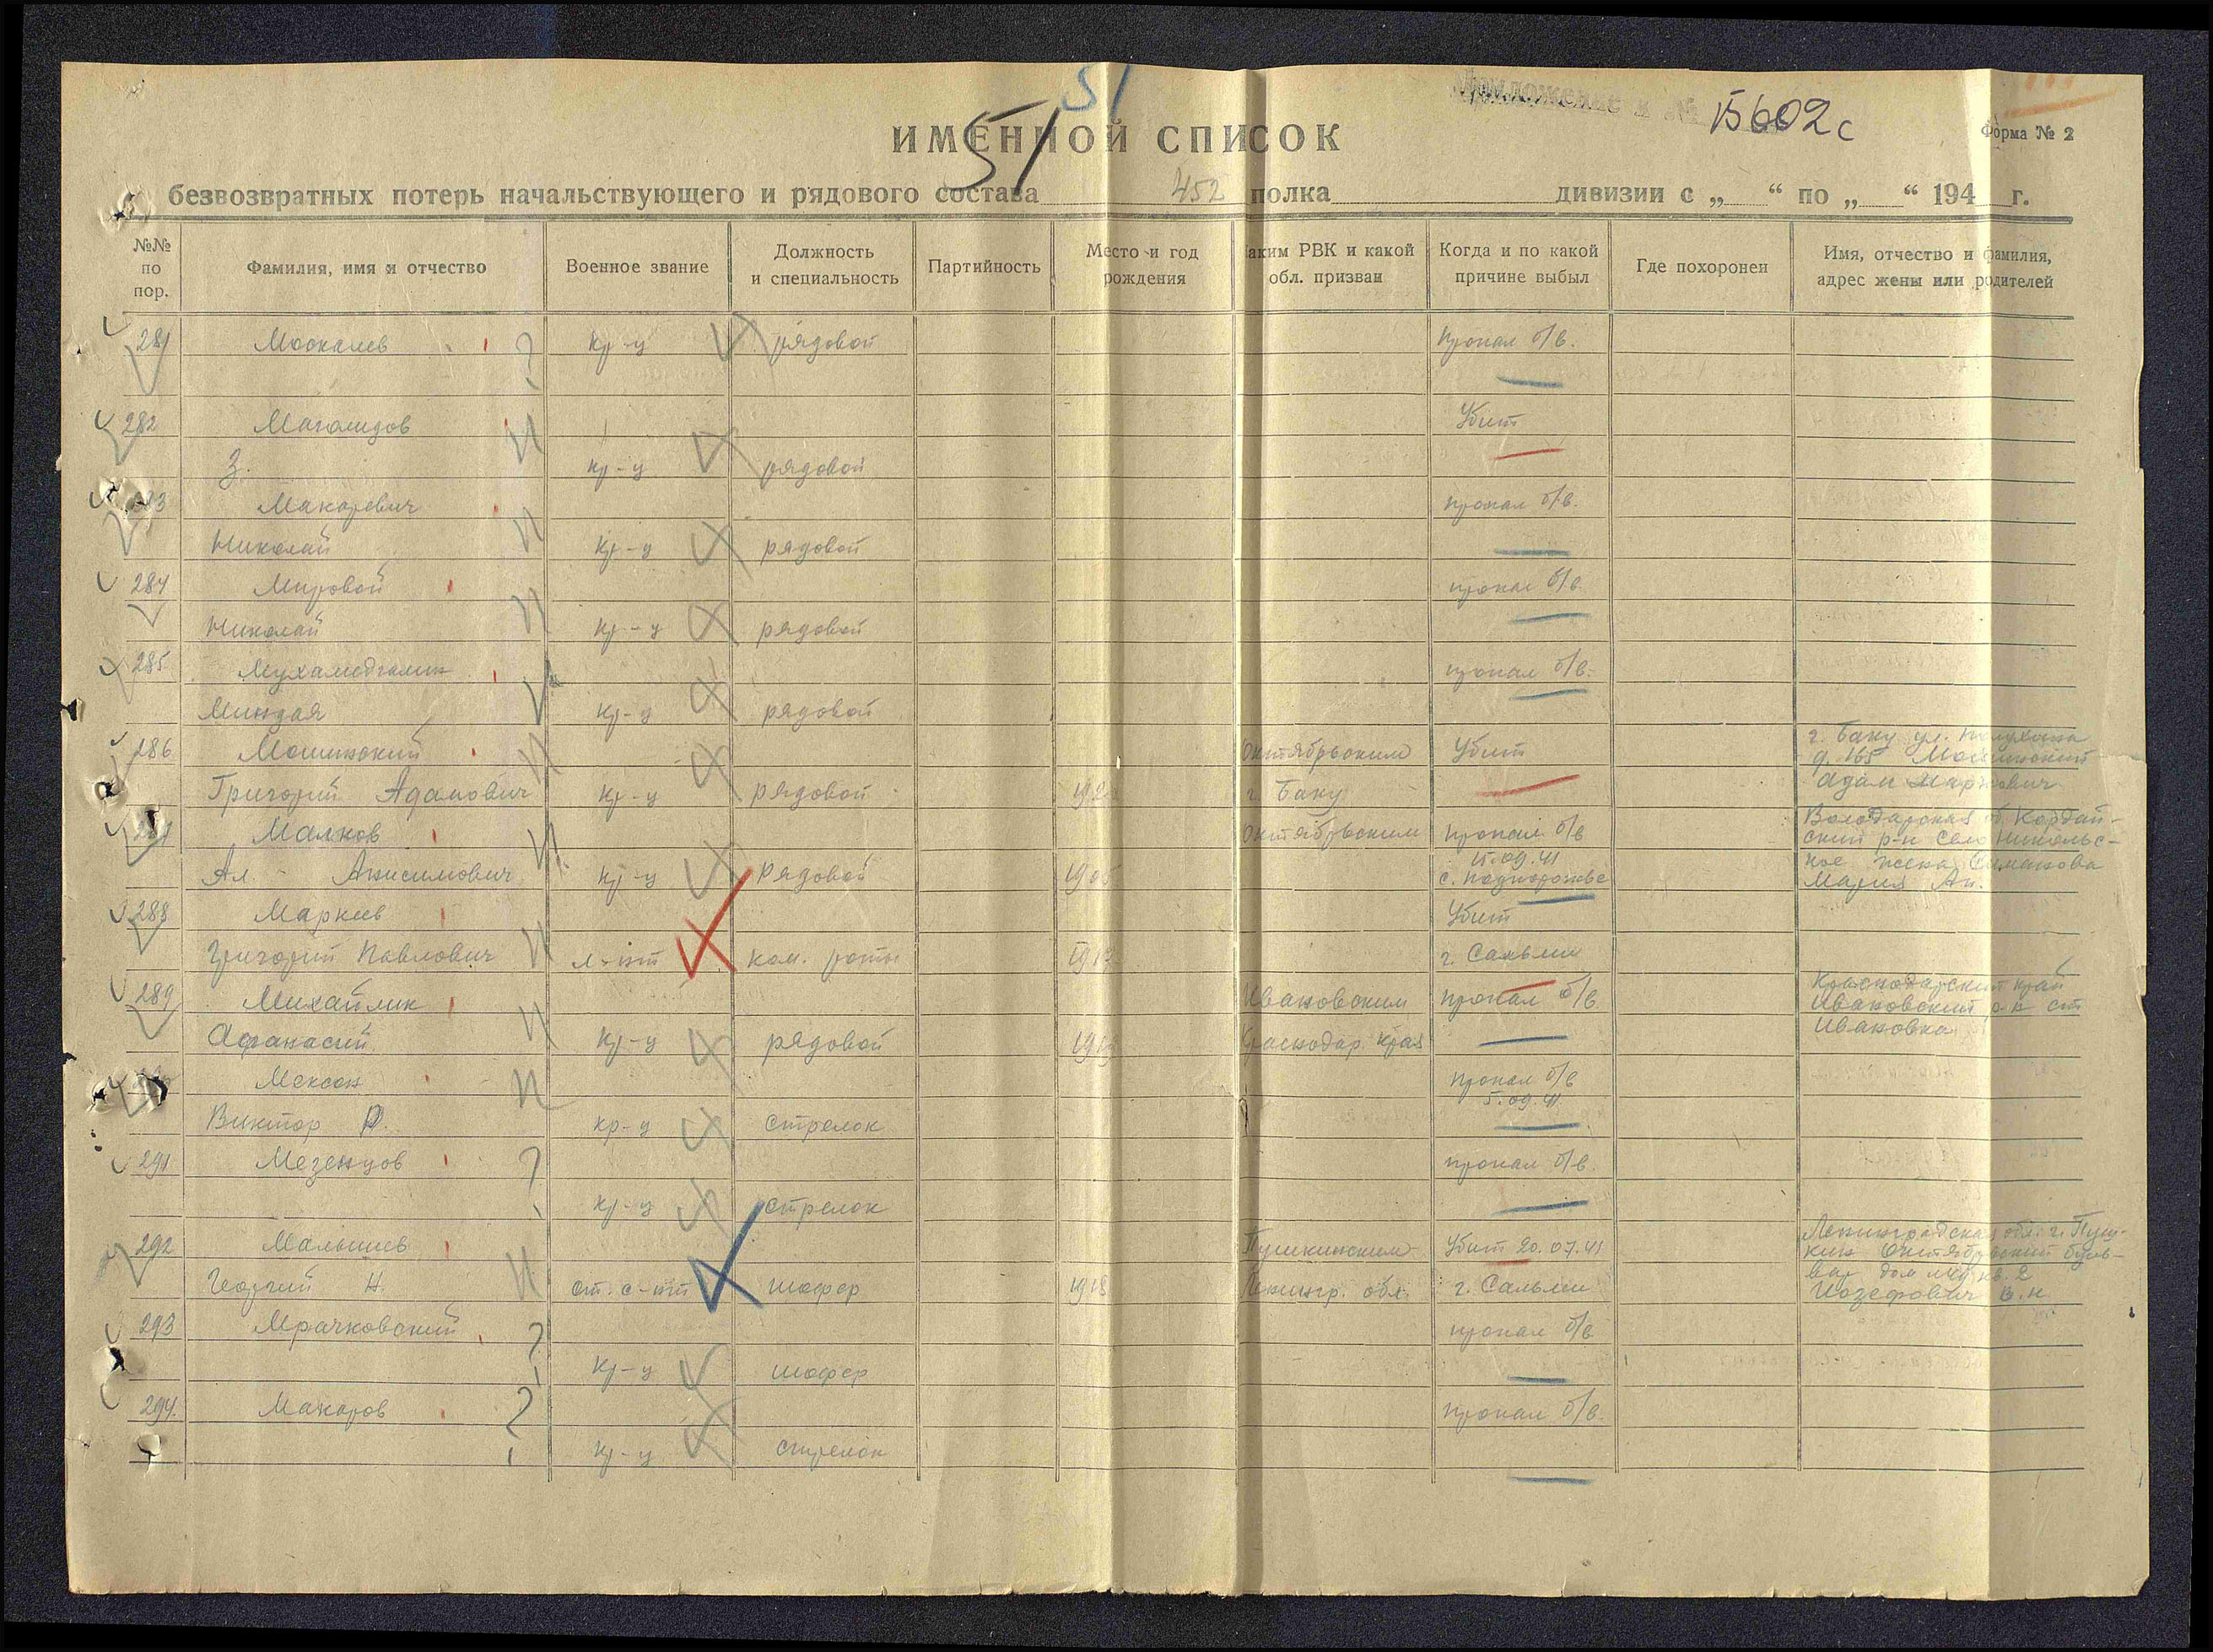 51
Приложение к № 15602с
ИМЕННОЙ СПИСОК
51
Форма № 2
безвозвратных потерь начальствующего и рядового состава 452 полка дивизии с „ “ по „ “ 194 г.
№№ по пор.
Фамилия, имя и отчество
Военное звание
Должность и специальность
Партийность
Место и год рождения
Каким РВК и какой обл. призван
Когда и по какой причине выбыл
Где похоронен
Имя, отчество и фамилия, адрес жены или родителей
281 Москалев ? кр-ц рядовой пропал б/в.
282 Магомидов Убит
З. кр-ц рядовой
283 Макаревич пропал б/в.
Николай кр-ц рядовой
284 Мировой пропал б/в.
Николай кр-ц рядовой
285 пропал б/в.
Миндая кр-ц рядовой
286 Мошинский Октябрьским Убит г. Баку ул.
Григорий Адамович кр-ц рядовой г. Баку д. 165 Мошинский
Адам
Малков Октябрьским пропал б/в Володарская об.
Ал. Анисимович кр-ц рядовой 15.09.41 ский р-н село Никольс-
с. кое жена
Мария Ан.
288 Маркев Убит
Григорий Павлович л-нт ком. роты г. Сальми
289 Михайлик Ивановским пропал б/в Краснодарский край
Афанасий кр-ц рядовой Краснодар. края Ивановский р-н ст
Ивановка
Мексон пропал б/в
5.09.41
Виктор Р. кр-ц стрелок
291 Мезенцов ? пропал б/в.
кр-ц стрелок
292 Малышев Пушкинским Убит 20.07.41 Ленинградская обл. г. Пуш-
кин Октябрьский буль-
Георгий Н. ст. с-нт шофер 1918 Ленингр. обл. г. Сальми вар дом кв. 2
Иозефович В.Н
293 Мрачковский ? пропал б/в
кр-ц шофер
294. Макаров ? пропал б/в.
кр-ц стрелок